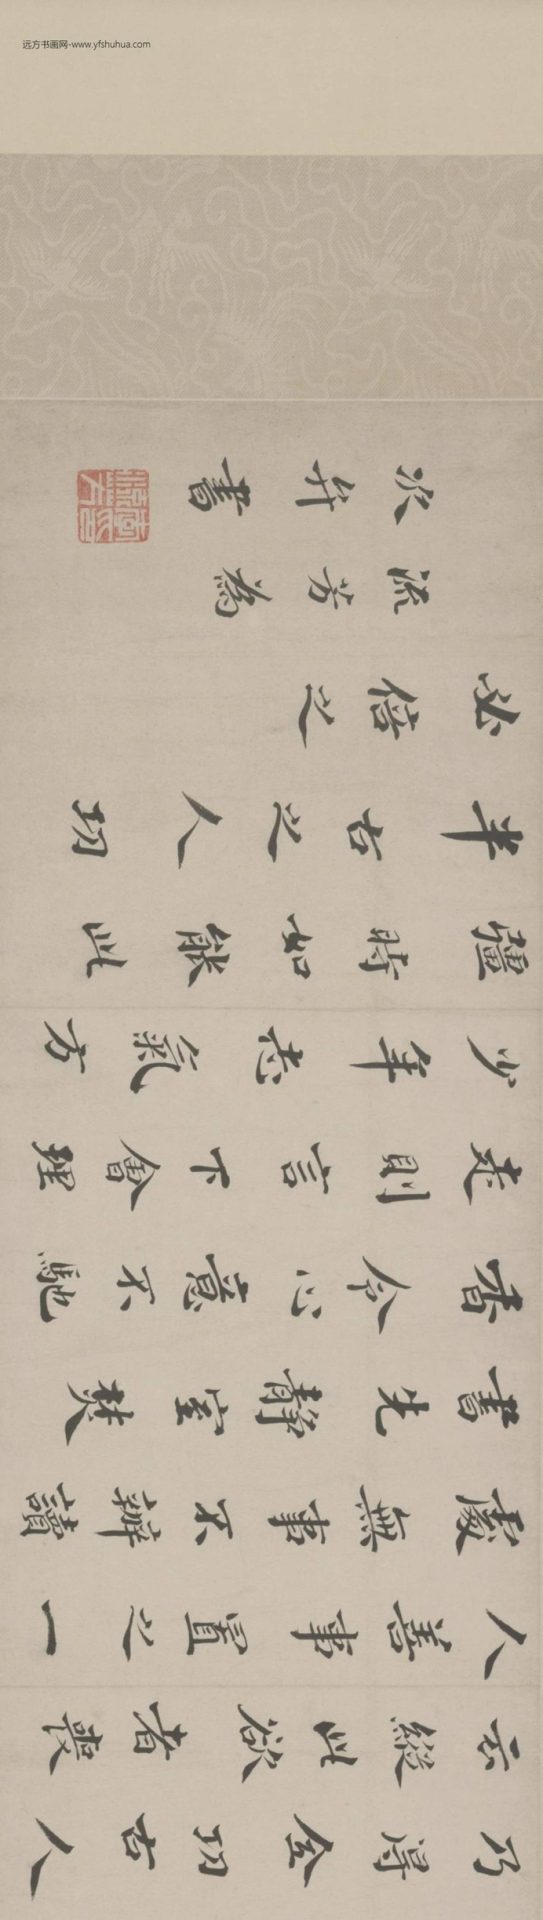 远方书画网-www.yfshuhua.com
乃得全功古人
云縱此欲者喪
人善事置之一
處無事不辦讀
書先靜室焚
香令心意不馳
走則言下會理
少年志氣方
彊時如能此
半古之人功
必倍之
流芳為
次弁書